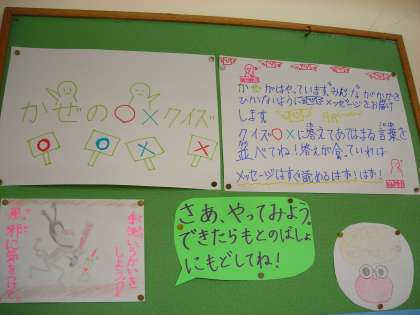 かぜの○×クイズ
○ ○ × ×
かぜがはやっています。みんながかぜを
ひかないように メッセージをお届け
します
クイズ○×に答えてあてはまる言葉を
並べてね！答えが合っていれば
メッセージはすぐ読めるはず！はず！
さあ、やってみよう。
できたらもとのばしょ
にもどしてね！
手洗いうがいを
しよう
風邪に気をつけて